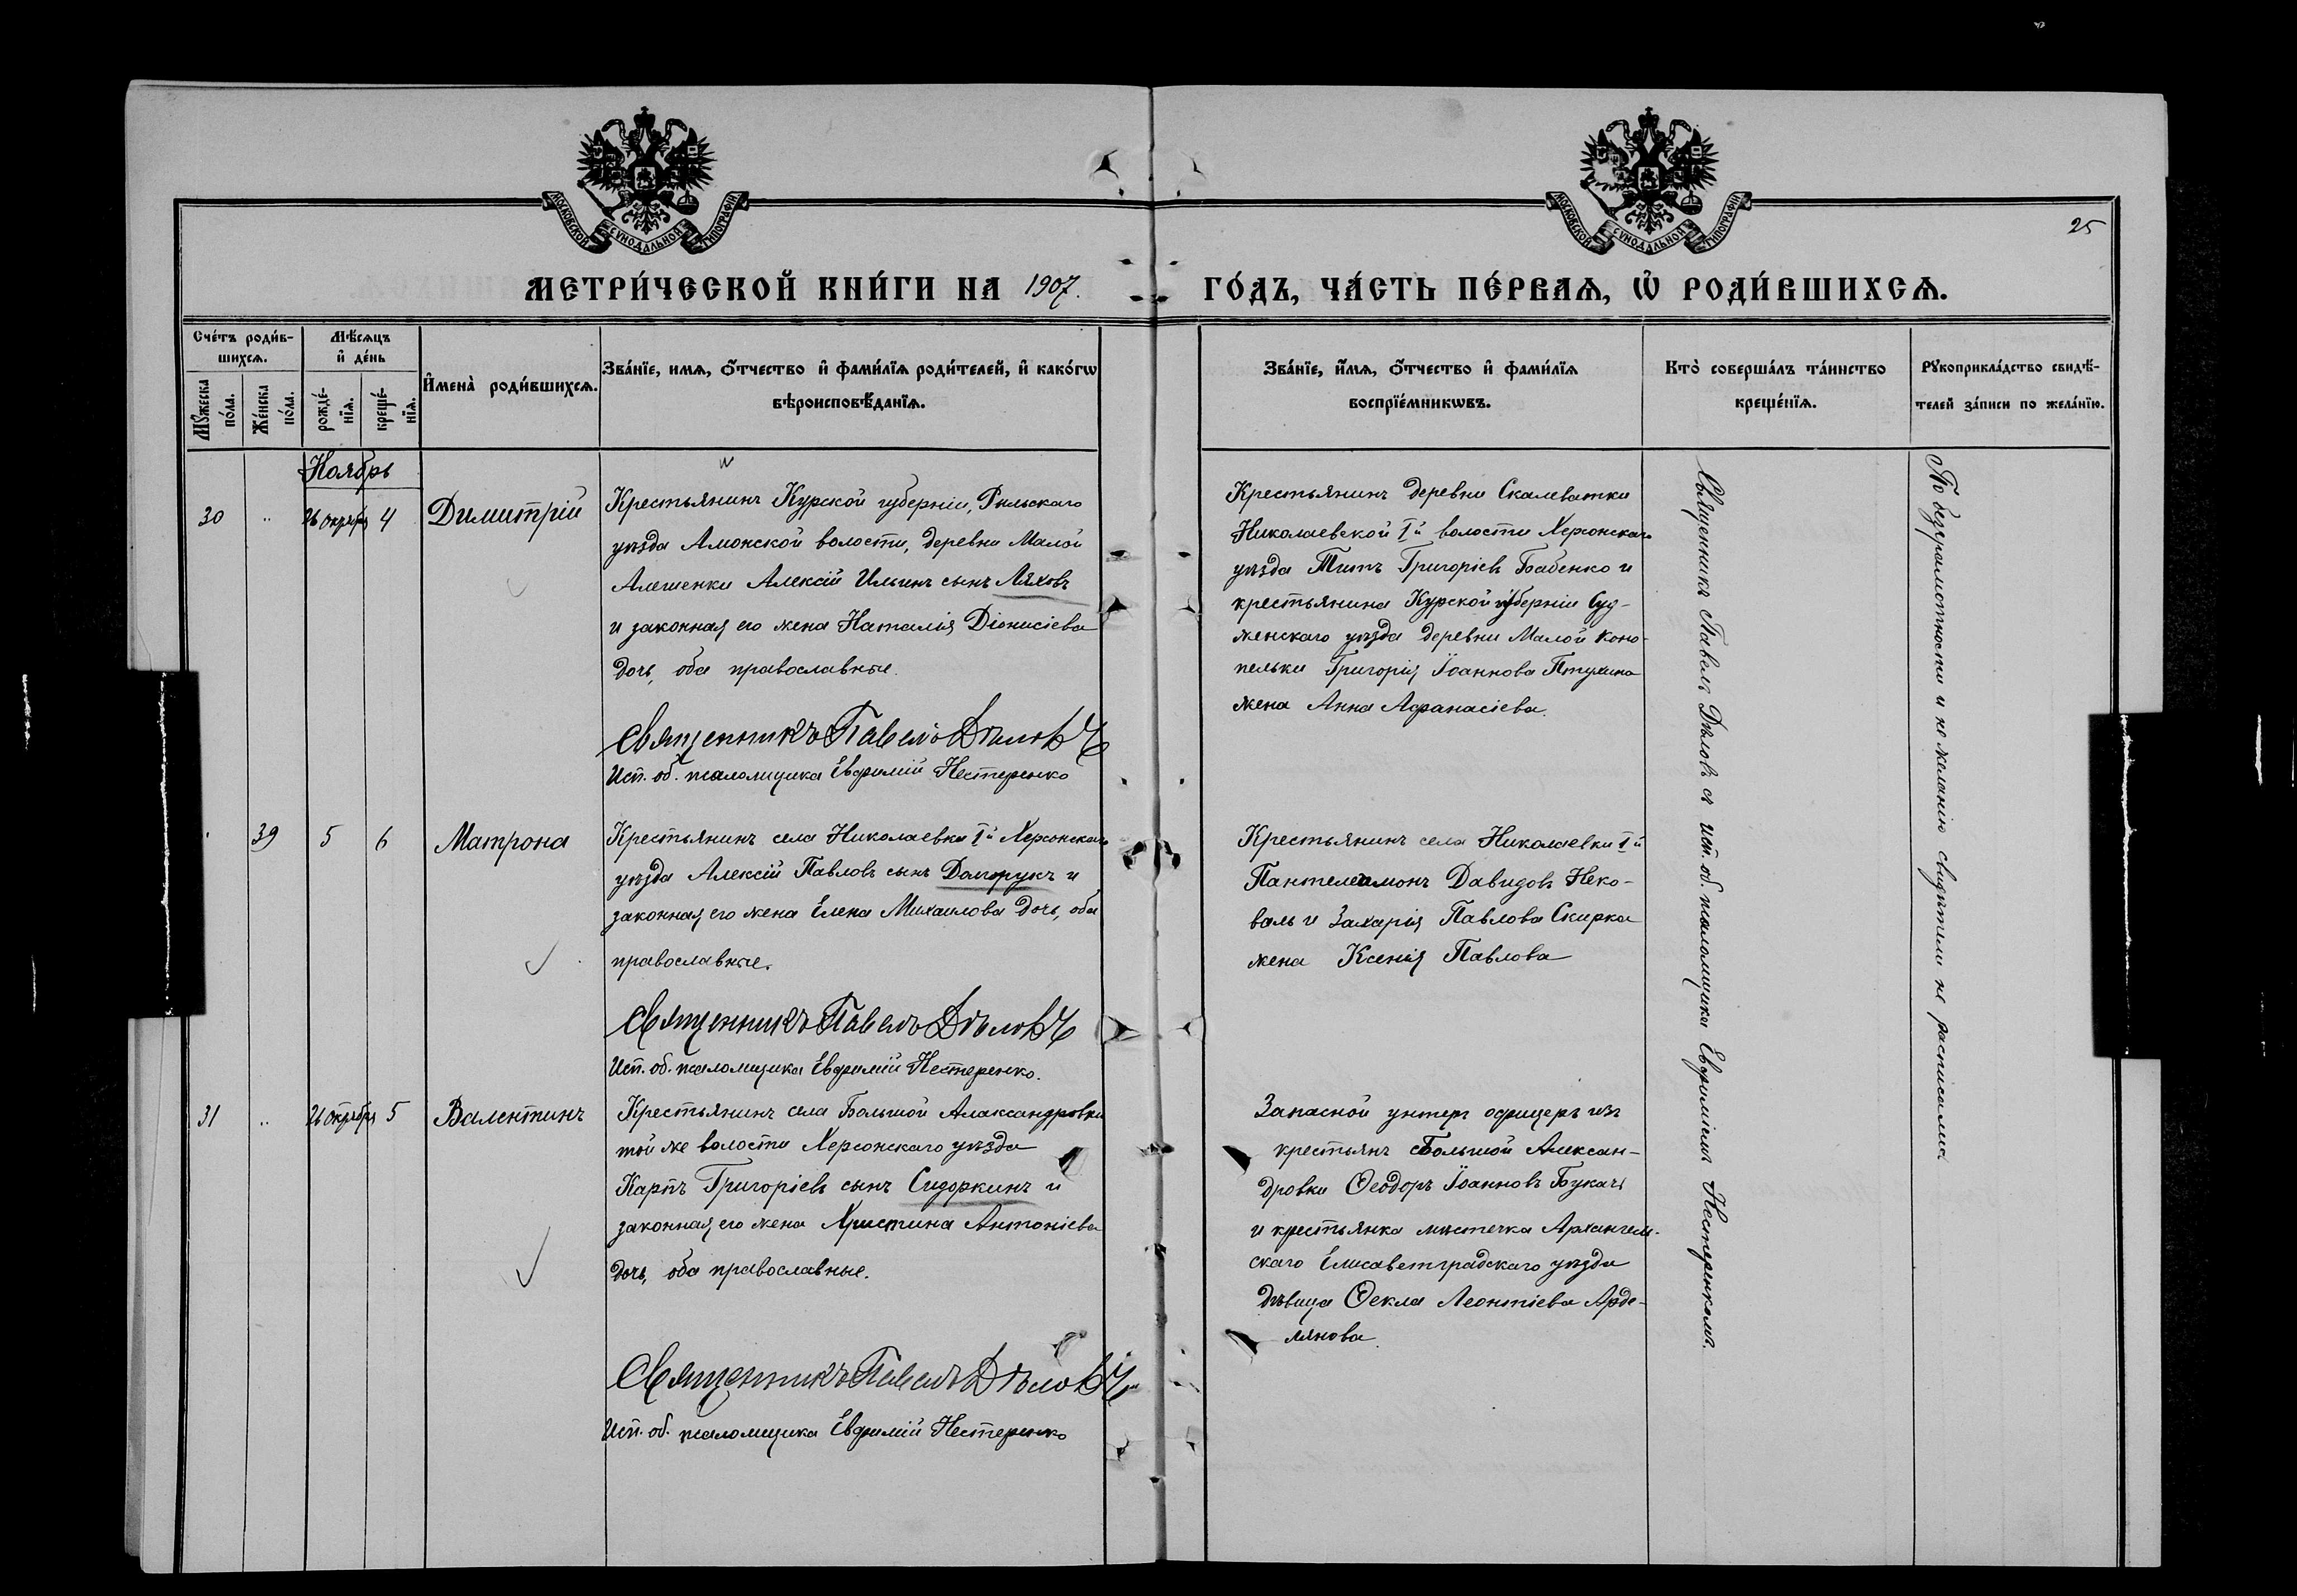 МОСКОВСКОЙ СѴНОДАЛЬНОЙ ТИПОГРАФІИ
МОСКОВСКОЙ СѴНОДАЛЬНОЙ ТИПОГРАФІИ
25
МЕТРИ́ЧЕСКОЙ КНИ́ГИ НА 1907. ГО́ДЪ, ЧА́СТЬ ПЕ́РВАѦ, Ѡ РОДИ́ВШИХСѦ.
Сче́тъ роди́в-
шихсѧ.
Мꙋжеска по́ла.
Же́нска по́ла.
Мѣ́сѧцъ
и҆ де́нь
рожде́-
нїѧ.
креще́-
нїѧ.
И҆мена̀ роди́вшихсѧ.
Зва́нїе, имѧ, ѻ҆́тчество и҆ фами́лїѧ роди́телей, и҆ како́гѡ
вѣроисповѣ́данїѧ.
Зва́нїе, и҆́мѧ, ѻ҆́тчество и҆ фами́лїѧ
воспрїе́мникѡвъ.
Кто̀ соверша́лъ та́инство
креще́нїѧ.
Рꙋкоприкла́дство свидѣ́-
телей за́писи по жела́нїю.
Ноябрь
30 " 26 октября 4 Димитрій
Крестьянинъ Курской губерніи, Рыльскаго
уѣзда Амонской волости, деревни Малой
Алешенки Алексій Ильинъ сынъ Ляховъ
и законная его жена Наталія Діонисіева
дочь, оба православные.
Священникъ Павелъ Дѣловъ
Исп. об. псаломщика Евфимій Нестеренко
Крестьянинъ деревни Скалеватки
Николаевской I й волости Херсонскаго
уѣзда Титъ Григоріевъ Бабенко и
крестьянина Курской губерніи Суд-
женскаго уѣзда деревни Малой Коно-
пельки Григорія Іоаннова Птухина
жена Анна Афанасіева.
39 5 6 Матрона
Крестьянинъ села Николаевки I й Херсонскаго
уѣзда Алексій Павловъ сынъ Долгорукъ и
законная его жена Елена Михаилова дочь, оба
православные.
Священникъ Павелъ Дѣловъ
Исп. об. псаломщика Евфимій Нестеренко.
Крестьянинъ села Николаевки I й
Пантелеимонъ Давидовъ Неко-
валь и Захарія Павлова Скирка
жена Ксенія Павлова
31 " 26 октября 5 Валентинъ
Крестьянинъ села Большой Александровки
той же волости Херсонскаго уѣзда
Карпъ Григоріевъ сынъ Сидоркинъ и
законная его жена Христина Антоніева
дочь, оба православные.
Священникъ Павелъ Дѣловъ
Исп. об. псаломщика Евфимій Нестеренко
Запасной унтеръ офицеръ изъ
крестьянъ с Большой Алексан-
дровки Ѳеодоръ Іоанновъ Букачъ
и крестьянка мѣстечка Архангель-
скаго Елисаветградскаго уѣзда
дѣвица Ѳекла Леонтіева Арде-
лянова.
Священникъ Павелъ Дѣловъ съ исп. об. псаломщика Евфиміемъ Нестеренкомъ.
По безграмотности и не желанію свидѣтели не расписались